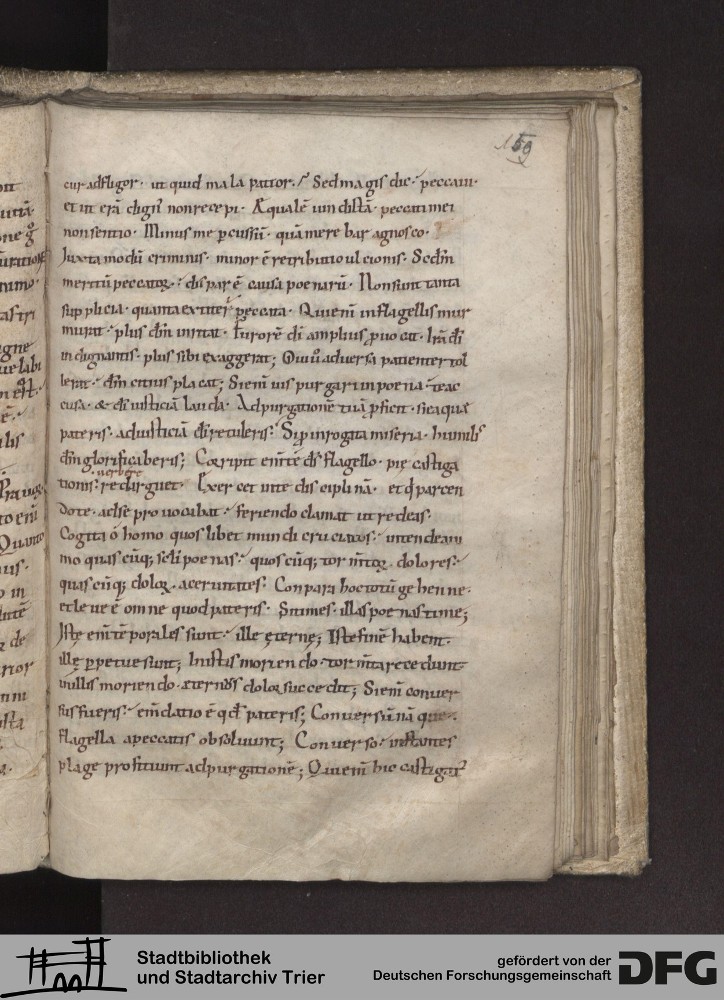 159
cur adfligor · ut quid mala patior · Sed magis dic · peccaui ·
et ut erā dign' non recepi · Æqualē uindictā · peccati mei
non sentio · Minus me p̄cussū · quā merebar agnosco ·
Iuxta modū criminis · minor ē retributio ulcionis · Scdm
meritū peccatoꝝ · dispar ē causa poenarū · Non sunt tanta
supplicia · quanta extiterꝰ peccata · Qui enī in flagellis mur
murat · plus dm̄ inritat · furorē dī amplius ꝓuocat · irā dī
indignantis · plus sibi exaggerat; Qui ū aduersa patienter tol
lerat · dm̄ citius placat; Si enī uis purgari in poena · te ac
cusa · & dī iusticiā lauda · Ad purgationē tuā ꝓficit · si ea quæ
pateris · ad iusticiā dī retuleris · Si ꝓ inrogata miseria · humilit'
dm̄ glorificaberis; Corripit enī te ds̄ flagello · pię castiga
uerbere
tionis · redarguet · Exercet in te disciplinā · et q̄ parcen
dote · ad se prouocabat · feriendo clamat ut redeas ·
Cogita ō homo quoslibet mundi cruciatus · intende ani
mo quascūq; scl̄i poenas · quoscūq; tormtoꝝ dolores ·
quascūq; doloꝝ aceruitates · Conpara hoc totū gehennę ·
et leue ē omne quod pateris · Si times · illas poenas time;
Istę enī tēporales sunt · ille ęternę; Iste finē habent ·
illę ꝑpetue sunt; In istis moriendo · tormta recedunt
in illis moriendo · æternus dolor succedit; Si enī conuer
sus fueris · em̄datio ē qđ pateris; Conuersū nā que
flagella a peccatis obsoluunt; Conuerso · instantes
plage proficiunt ad purgationē; Qui enī hic castigat'
Stadtbibliothek
und Stadtarchiv Trier
gefördert von der
Deutschen Forschungsgemeinschaft
DFG